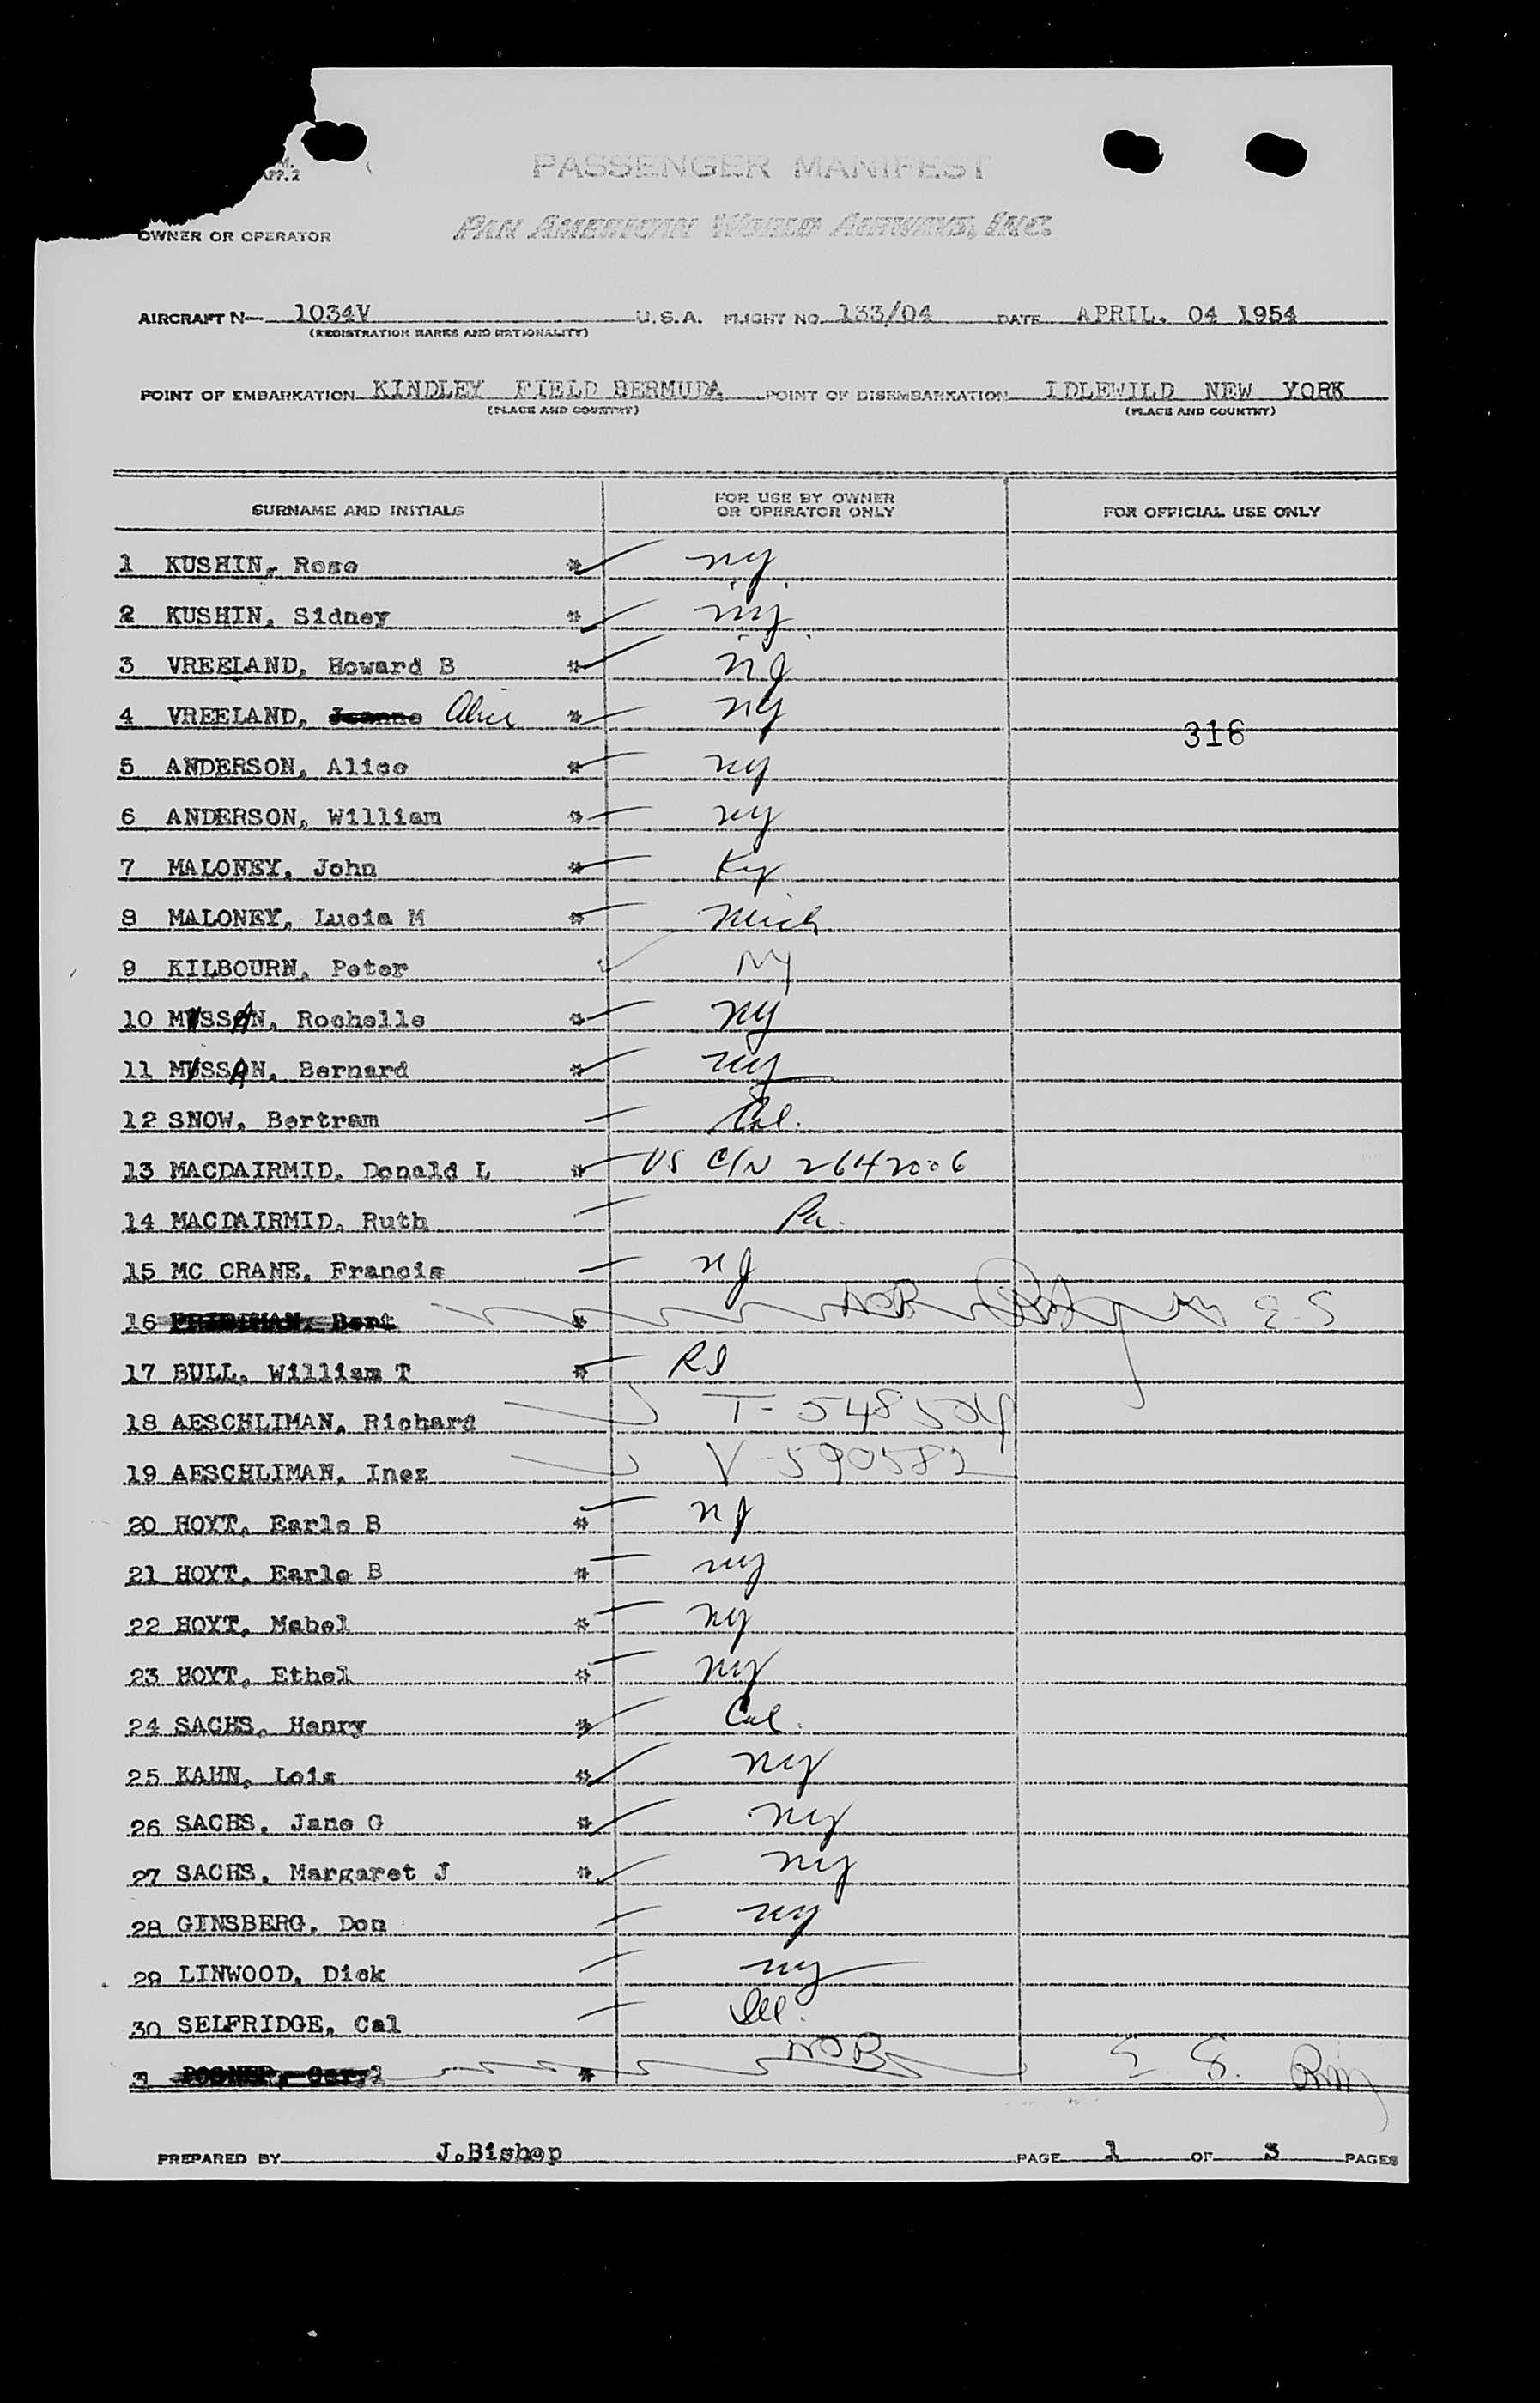 APP.2
PASSENGER MANIFEST
OWNER OR OPERATOR PAN AMERICAN WORLD AIRWAYS, INC.
AIRCRAFT N— 1034V U.S.A. FLIGHT NO. 133/04 DATE APRIL. 04 1954
(REGISTRATION MARKS AND NATIONALITY)
POINT OF EMBARKATION KINDLEY FIELD BERMUDA POINT OF DISEMBARKATION IDLEWILD NEW YORK
(PLACE AND COUNTRY) (PLACE AND COUNTRY)
SURNAME AND INITIALS FOR USE BY OWNER OR OPERATOR ONLY FOR OFFICIAL USE ONLY
1 KUSHIN, Rose * ny
2 KUSHIN, Sidney * nj
3 VREELAND, Howard B * nj
4 VREELAND, Jeanne Alice * ny
316
5 ANDERSON, Alice * ny
6 ANDERSON, William * ny
7 MALONEY, John * Ky
8 MALONEY, Lucia M * Mich
9 KILBOURN, Peter NY
10 MUSSAN, Rochelle * ny
11 MUSSAN, Bernard * ny
12 SNOW, Bertram Cal.
13 MACDAIRMID, Donald L * US C/N 2642006
14 MACDAIRMID, Ruth Pa.
15 MC CRANE, Francis nJ
16 Bert * NOB E-S
17 BULL, William T * RI
18 AESCHLIMAN, Richard T-548504
19 AESCHLIMAN, Inez V-590582
20 HOYT, Earle B * nJ
21 HOYT, Earle B * ny
22 HOYT, Mabel * ny
23 HOYT, Ethel * ny
24 SACHS, Henry * Cal.
25 KAHN, Lois * ny
26 SACHS, Jane G * ny
27 SACHS, Margaret J * ny
28 GINSBERG, Don ny
29 LINWOOD, Dick ny
30 SELFRIDGE, Cal Ill.
* NOB E S.
PREPARED BY J.Bishop PAGE 1 OF 3 PAGES